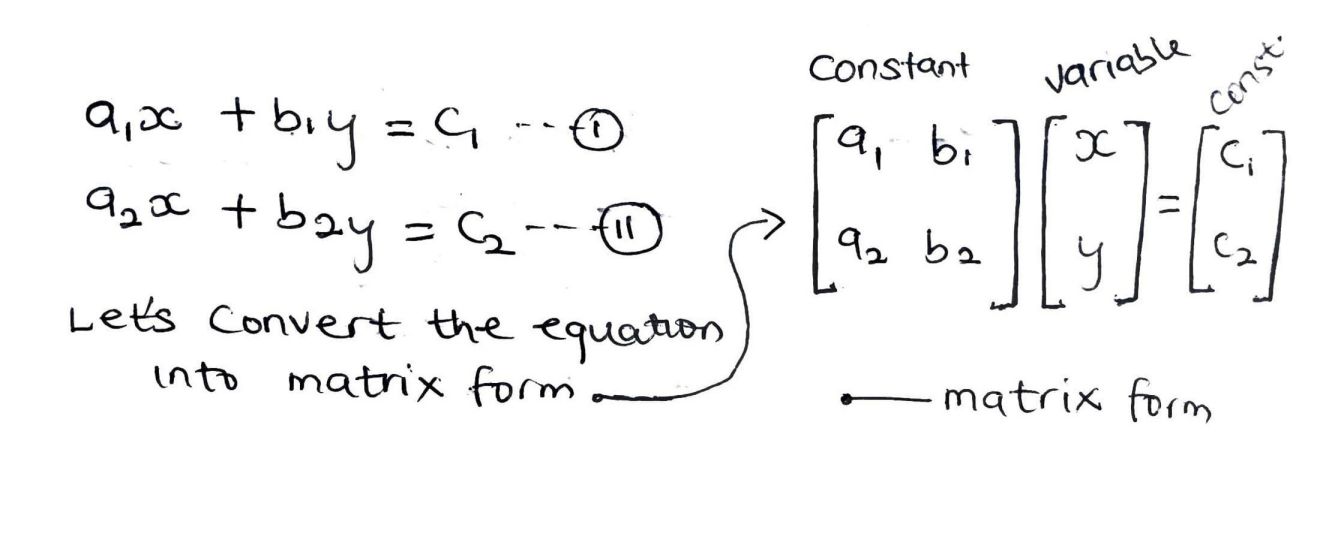 a₁x + b₁y = c₁ --- (I)
a₂x + b₂y = c₂ --- (II)
Let's convert the equation
into matrix form
Constant variable const.
[a₁ b₁] [x] = [c₁]
[a₂ b₂] [y] [c₂]
matrix form